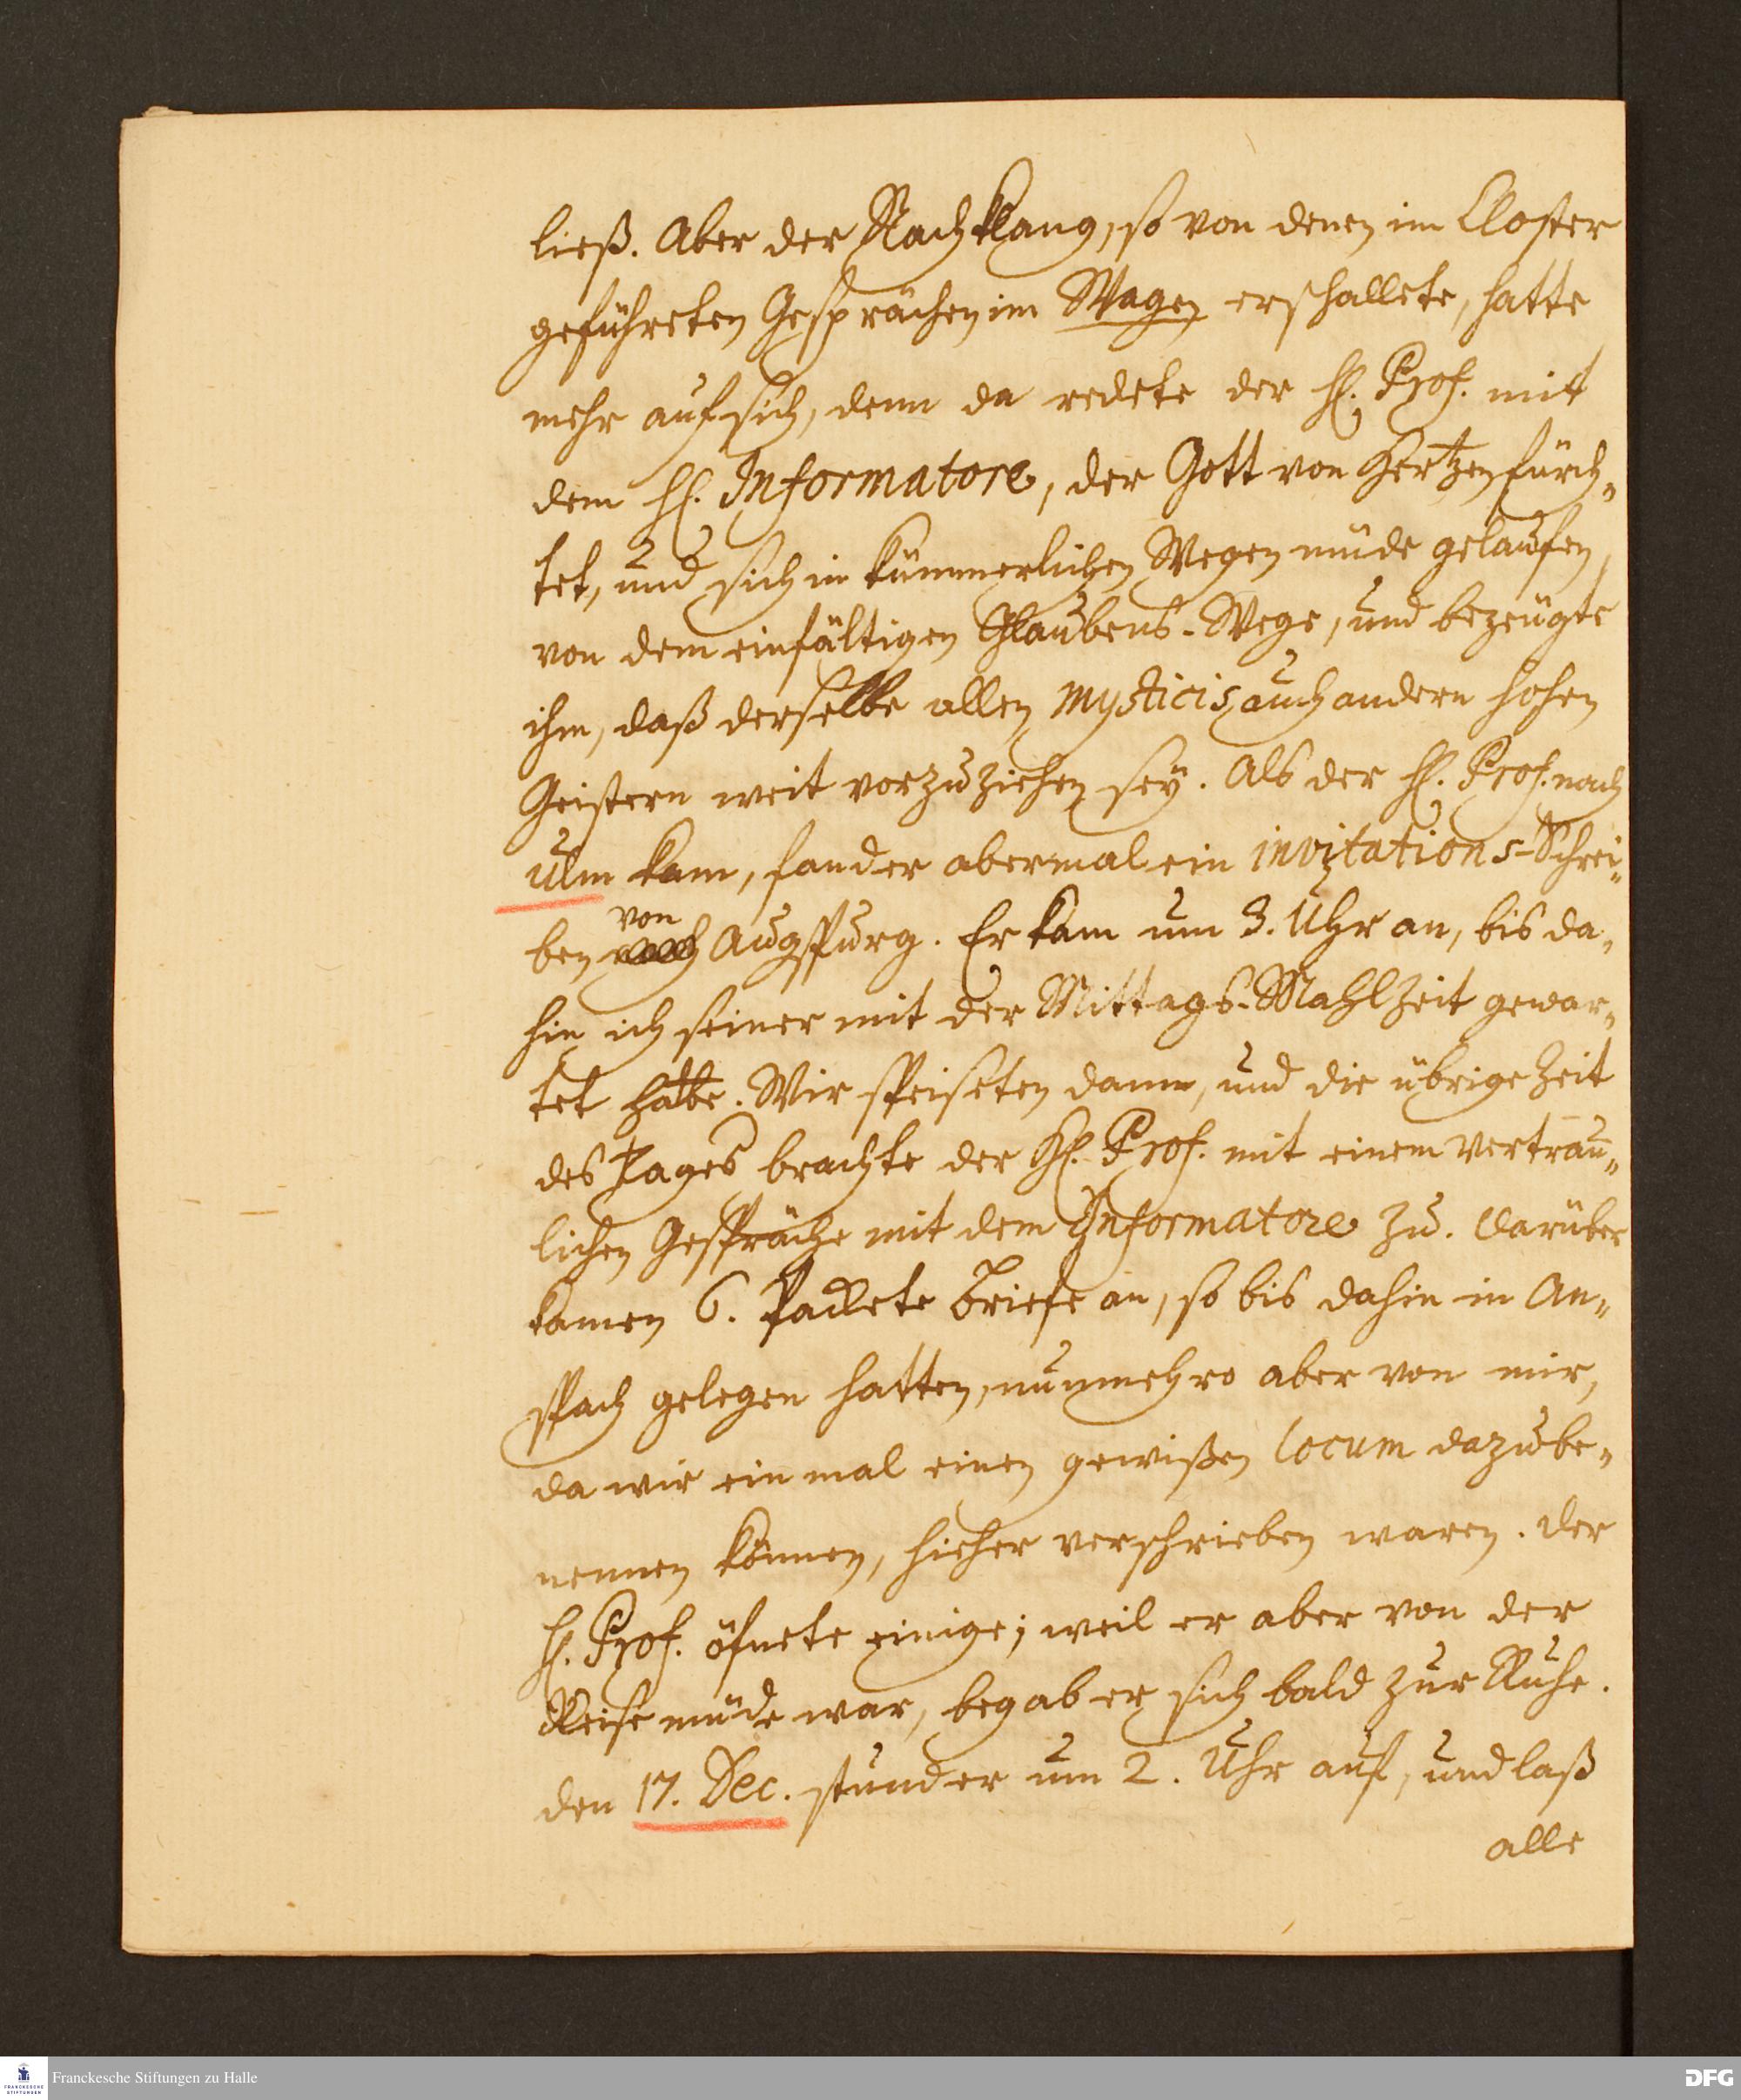 ließ. Aber der Nachklang, so von denen im Closter
geführeten Gesprächen im Wagen erschallete, hatte
mehr auf sich, denn da redete der H. Prof. mit
dem H. Informatore, der Gott von Hertzen fürch-
tet, und sich in kümmerlichen Wegen müde gelaufen,
von dem einfältigen Glaubens-Wege, und bezeugte
ihm, daß derselbe allen Mysticis, auch andern hohen
Geistern weit vorzuziehen sey. Als der H. Prof. nach
Ulm kam, fand er abermal ein invitations-Schrei-
von
ben Augspurg. Er kam um 3. Uhr an, bis da-
hin ich seiner mit der Mittags-Mahlzeit gewar-
tet hatte. Wir speiseten dann, und die übrige Zeit
des Tages brachte der H. Prof. mit einem vertrau-
lichen Gespräche mit dem Informatore zu. Darüber
kamen 6. Packete Briefe an, so bis dahin in An-
spach gelegen hatten, nunmehro aber von mir,
da wir einmal einen gewißen locum dazu be-
nennen können, hieher verschrieben waren. Der
H. Prof. öfnete einige; weil er aber von der
Reise müde war, begab er sich bald zur Ruhe.
den 17. Dec. stund er um 2. Uhr auf, und laß
alle
Franckesche Stiftungen zu Halle
FRANCKESCHE STIFTUNGEN
DFG